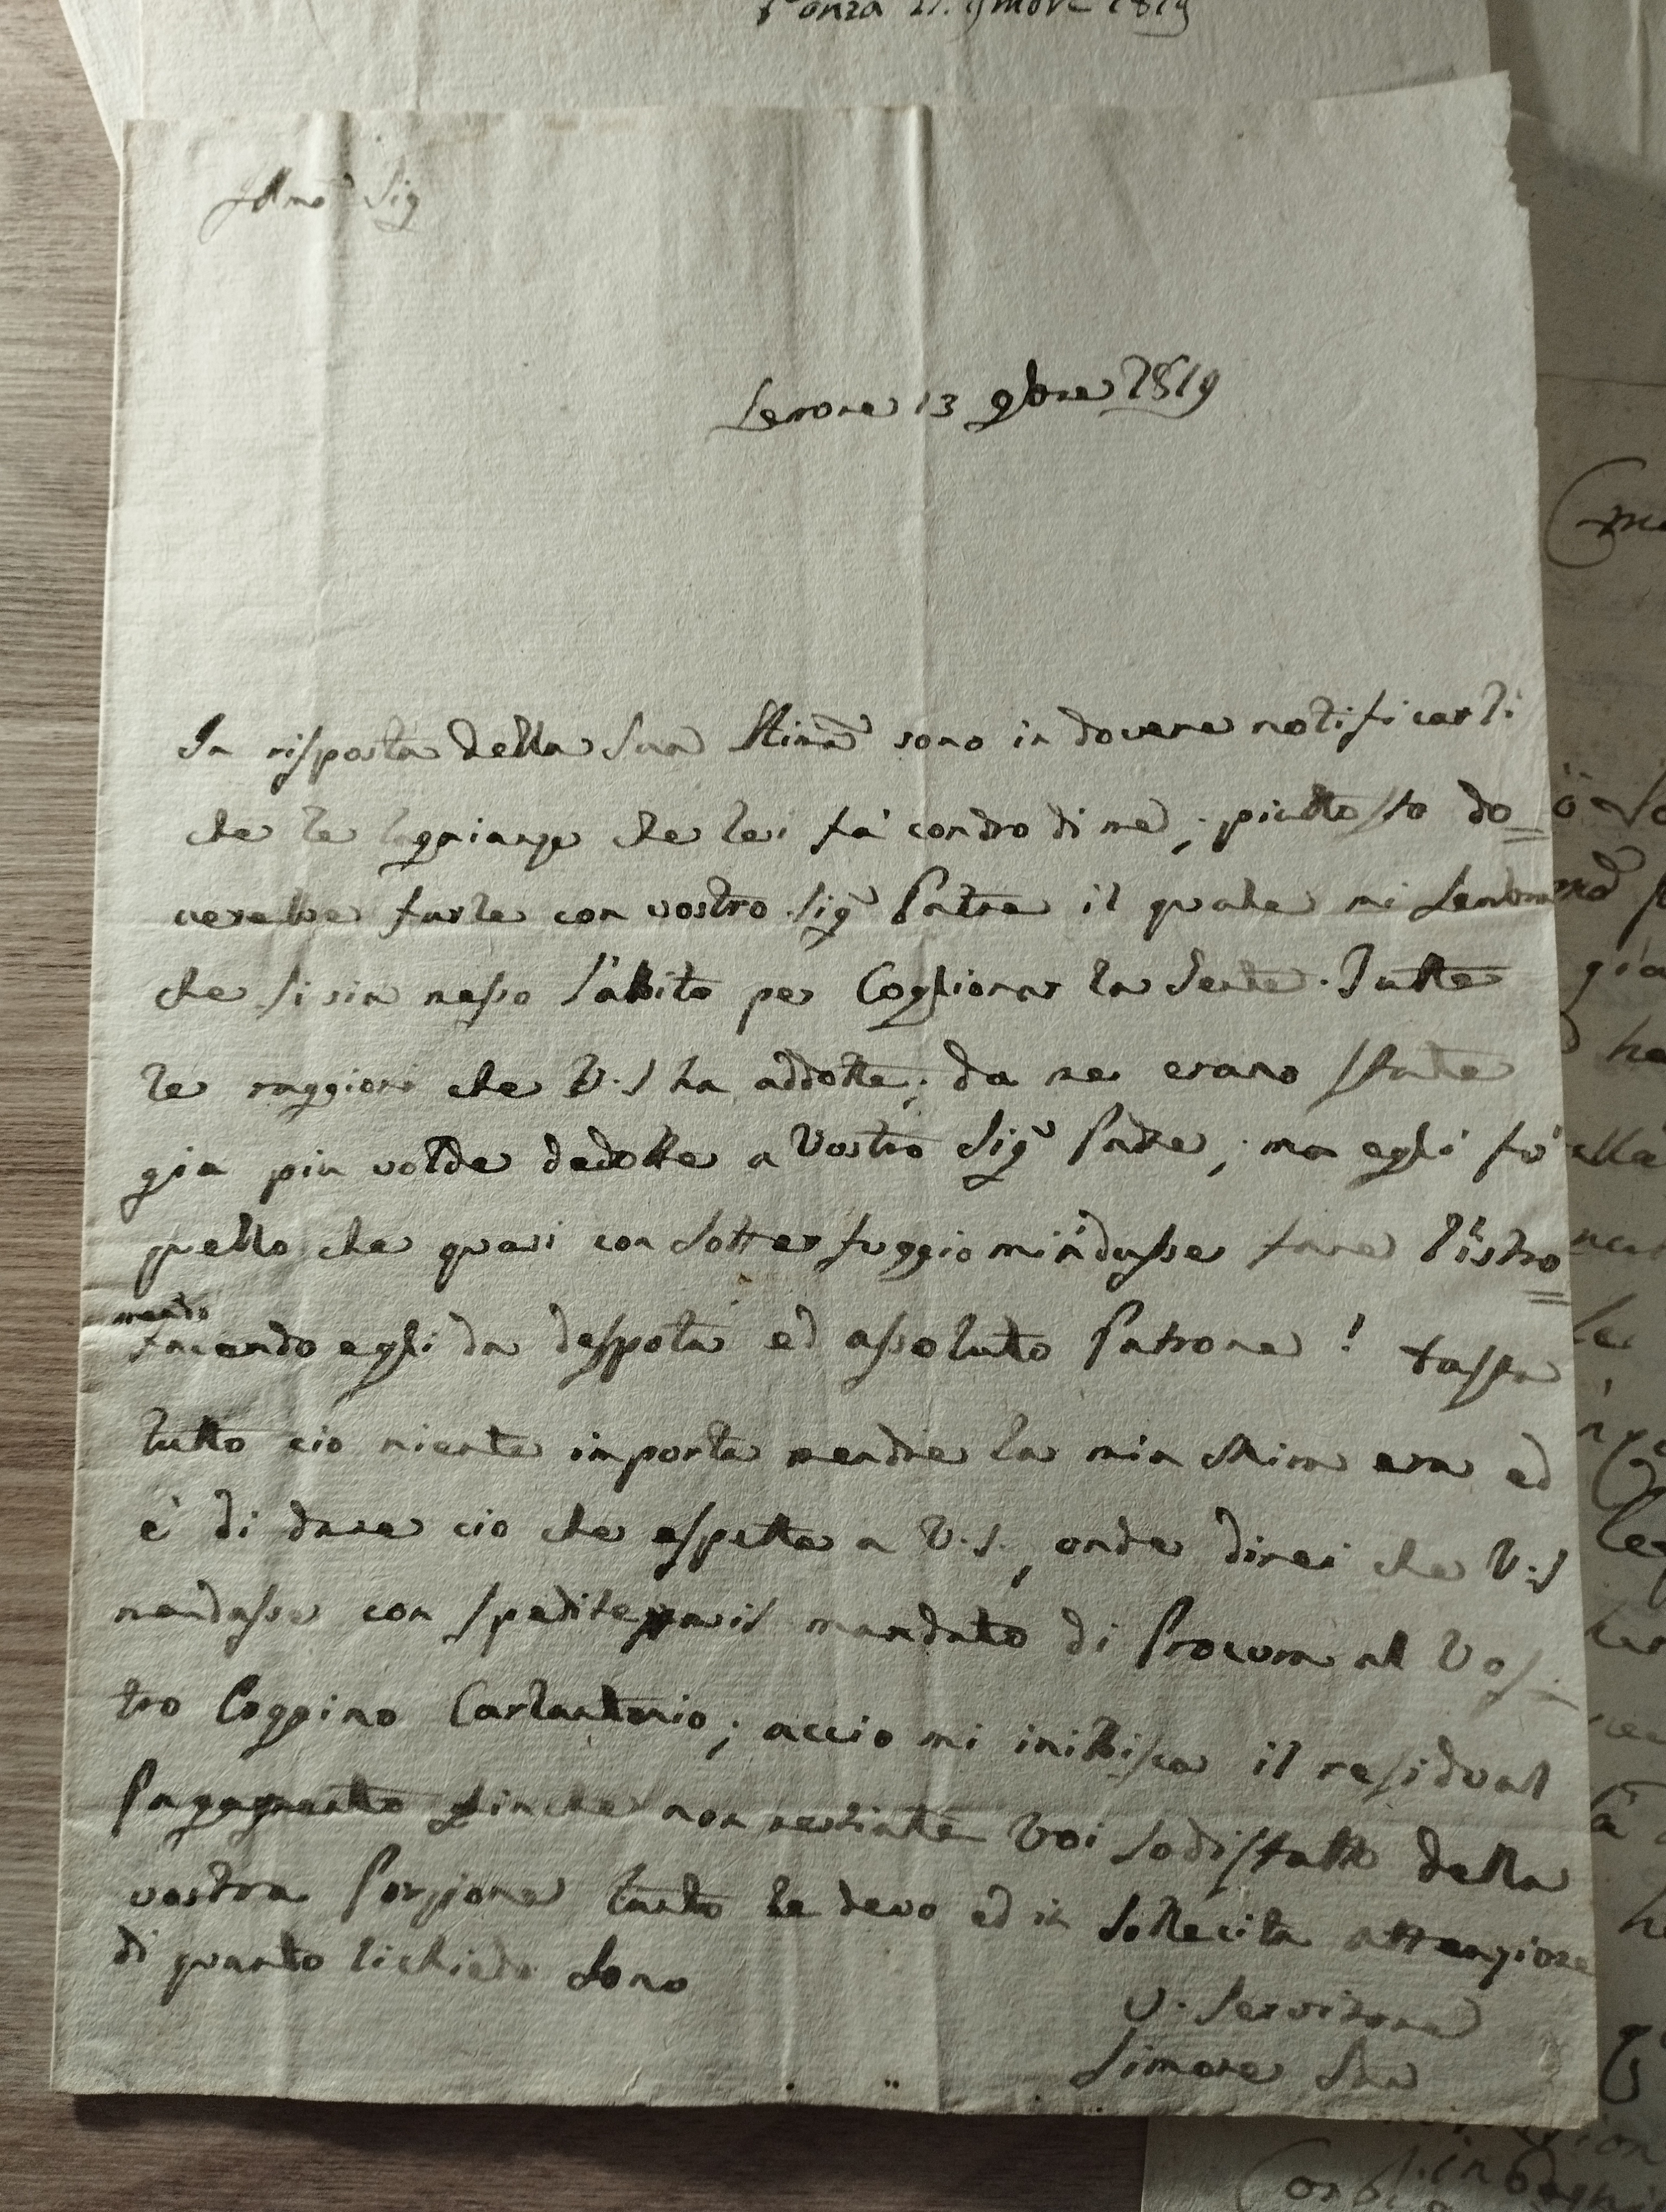 Ponza 21. 9mbre 1819
Illmo Sig
Lenone 13 9bre 1819
In risposta della Sua Stima sono in dovere notificarli
che le lagnianze che lei fà condro di me, piuttosto do=
verebbe farle con vostro Sig.r Patre il quale mi Sembra
che si sia messo l'abito per Coglionar la Gente. Tutte
le raggioni che V.S ha addotte, da me erano state
gia piu volde dedotte a Vostro Sig.r Padre, ma egli fù
quello che quasi con Sotterfuggio m'indusse fare l'istro=
mendo
facendo egli da despota ed assoluto Patrone! Basta
tutto cio niente importa mendre la mia Stima era ed
è di dare cio che aspetta a V.S., onde direi che V.S
mandasse con speditezza il mandato di Procura al Vos=
tro Coggino Carlantonio, accio mi inibisca il residual
Pagamento finche non restiate voi Sodisfatto della
vostra Porzione tanto le devo ed in Sollecita attenzione
di quanto li chiedo Sono
V. Servitore
Simone